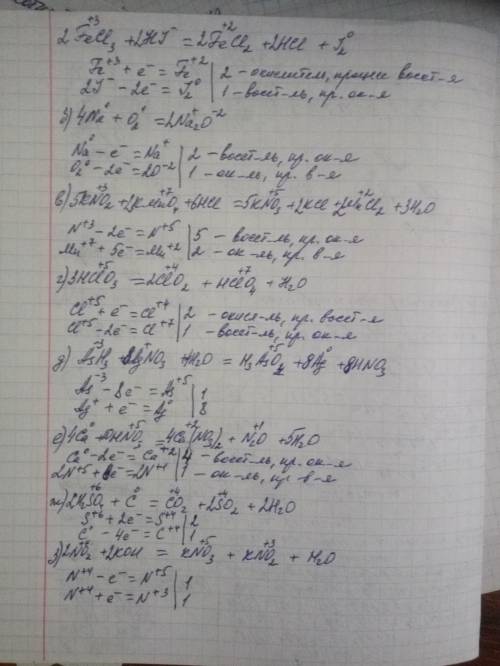 +3 +2
2FeCl3 + 2HI⁻ = 2FeCl2 + 2HCl + I2⁰
Fe⁺³ + e⁻ = Fe⁺² | 2 - окислитель, процесс восст-я
2I⁻ - 2e⁻ = I2⁰ | 1 - восст-ль, пр. ок-я
б) 4Na⁰ + O2⁰ = 2Na2⁺O⁻²
Na⁰ - e⁻ = Na⁺ | 2 - восст-ль, пр. ок-я
O2⁰ - 2e⁻ = 2O⁻² | 1 - ок-ль, пр. в-я
в) 5KNO2 + 2KMnO4 + 6HCl = 5KNO3 + 2KCl + 2MnCl2 + 3H2O
N⁺³ - 2e⁻ = N⁺⁵ | 5 - восст-ль, пр. ок-я
Mn⁺⁷ + 5e⁻ = Mn⁺² | 2 - ок-ль, пр. в-я
г) 3HClO3 = 2ClO2 + HClO4 + H2O
Cl⁺⁵ + e⁻ = Cl⁺⁴ | 2 - окисл-ль, пр. восст-я
Cl⁺⁵ - 2e⁻ = Cl⁺⁷ | 1 - восст-ль, пр. ок-я
д) AsH3 + 8AgNO3 + 4H2O = H3AsO4 + 8Ag⁰ + 8HNO3
As⁻³ - 8e⁻ = As⁺⁵ | 1
Ag⁺ + e⁻ = Ag⁰ | 8
е) 4Ca⁰ + 10HNO3 = 4Ca(NO3)2 + N2O + 5H2O
Ca⁰ - 2e⁻ = Ca⁺² | 4 - восст-ль, пр. ок-я
2N⁺⁵ + 8e⁻ = 2N⁺¹ | 1 - ок-ль, пр. в-я
ж) 2H2SO4 + C⁰ = CO2 + 2SO2 + 2H2O
S⁺⁶ + 2e⁻ = S⁺⁴ | 2
C⁰ - 4e⁻ = C⁺⁴ | 1
з) 2NO2 + 2KOH = KNO3 + KNO2 + H2O
N⁺⁴ - e⁻ = N⁺⁵ | 1
N⁺⁴ + e⁻ = N⁺³ | 1